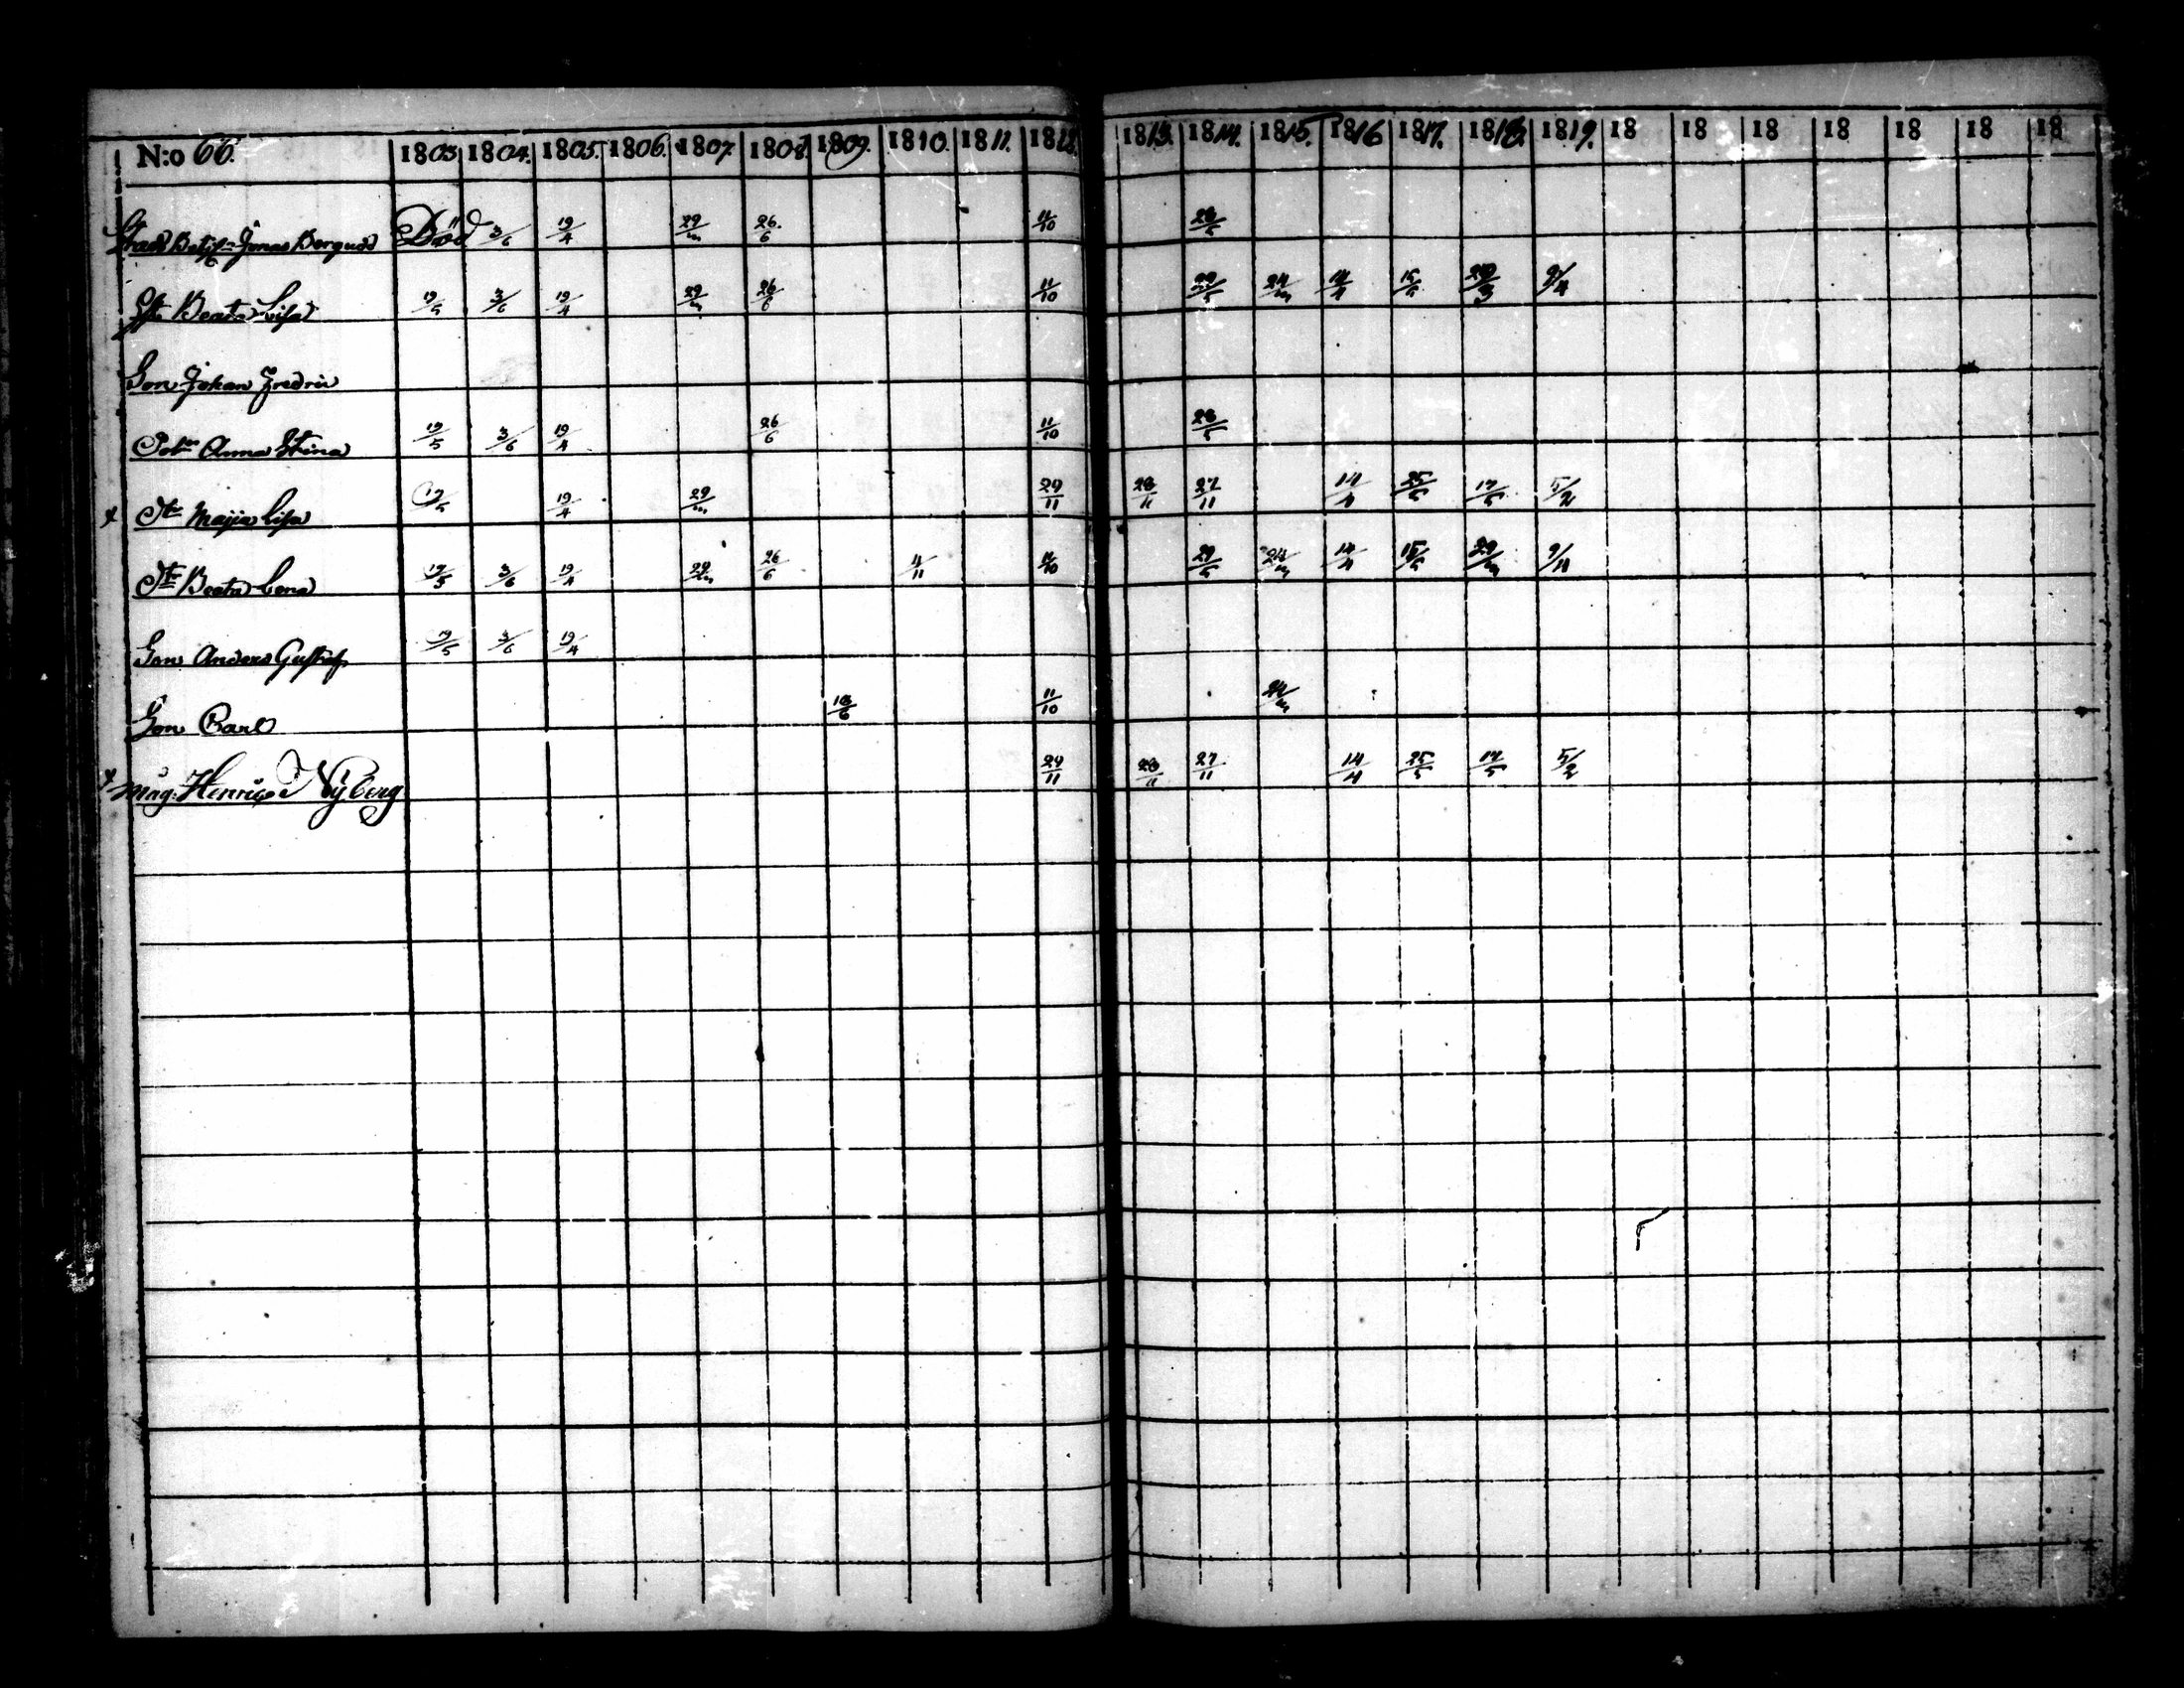 N:o 66. 1803 1804. 1805. 1806. 1807. 1808. 1809. 1810. 1811. 1812. 1813. 1814. 1815. 1816 1817. 1818. 1819. 18 18 18 18 18 18 18
Jonas Död 3/6 19/4 29/m 26/6 11/10 28/5
Beata Lisa 19/5 3/6 19/4 29/m 26/6 11/10 29/5 24/m 14/4 15/5 9/4
Son Johan Fredric
Anna Stina 19/5 3/6 19/4 26/6 11/10 28/5
x Majia Lisa 19/5 19/4 29/m 29/11 28/11 27/11 14/4 25/5 17/5 5/2
Beata Lena 19/5 3/6 19/4 29/m 26/6 11/11 11/10 29/5 24/m 14/4 15/5 29/m 9/4
Son Anders Gustaf 19/5 3/6 19/4
Son Carl 18/6 11/10 24/m
x Mag: Henric Nyberg 29/11 28/11 27/11 14/4 25/5 17/5 5/2